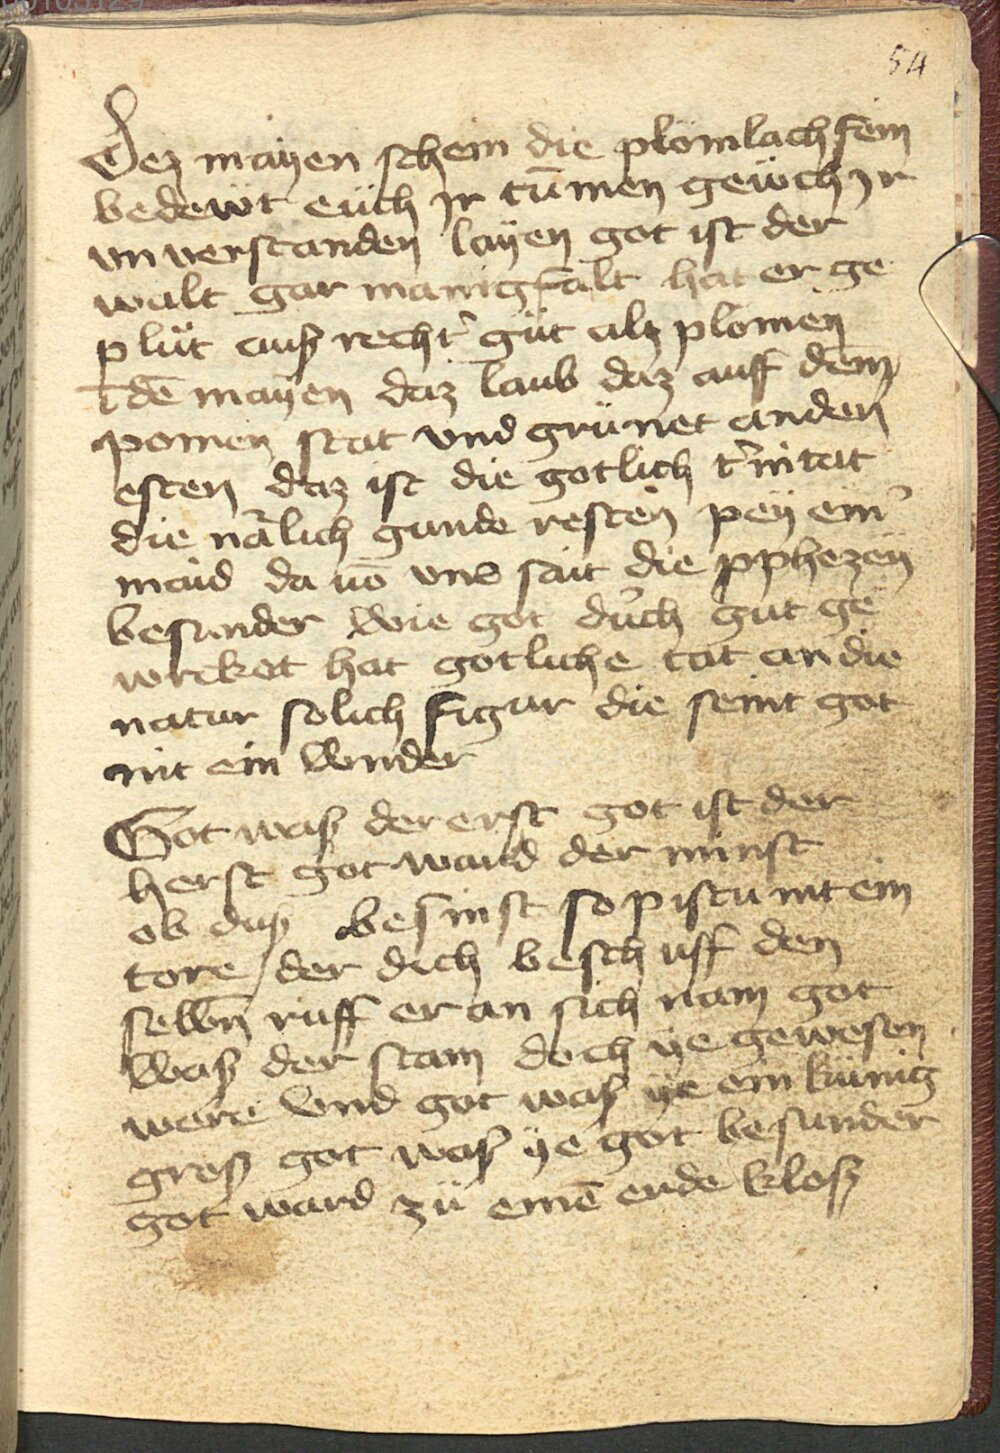 54
Dez mayen schein die plömlach fein
bedewt eüch jr tūmen gewch jr
vnuerstanden layen got ist der
walt gar manigfalt hat er ge
plüt auß recht' güt alz plomen
ī dē mayen daz laub daz auff dem
pomen stat vnd grünet an den
esten daz ist die gotlich t'nitat
die nā'lich gunde resten pey ein'
maid da uō vns sait die pphezey
besunder wie got durch gut ge
wrcket hat gotliche tat an die
natur solich figur die seint got
nit ein wnder
Got waß der erst got ist der
herst got ward der minst
ob duß besinst so pistu nit ein
tore der dich beschuff den
selbn ruff er an sich nam got
waß der stam doch ye gewesen
were vnd got waß ye ein künig
groß got waß ye got besunder
got ward zü einē erde kloß